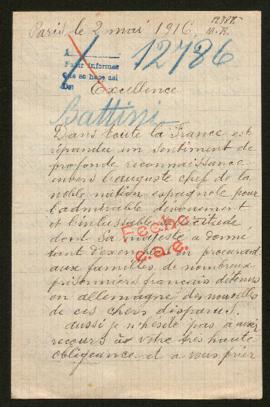 Paris le 2 mai 1916
12786
A
Pedir informes
que se hace así
Excellence
Battini
Dans toute la France est
répandu un sentiment de
profonde reconnaissance
envers l'auguste chef de la
noble nation espagnole pour
l'admirable dévouement
et l'inlassable
dont Sa Majesté a donné
tant d'exemples en procurant
aux familles de nombreux
prisonniers français détenus
en allemagne des nouvelles
de ces chers disparus.
Fecho
aussi je n'hésite pas à avoir
recours à votre très haute
obligeance et à vous prier